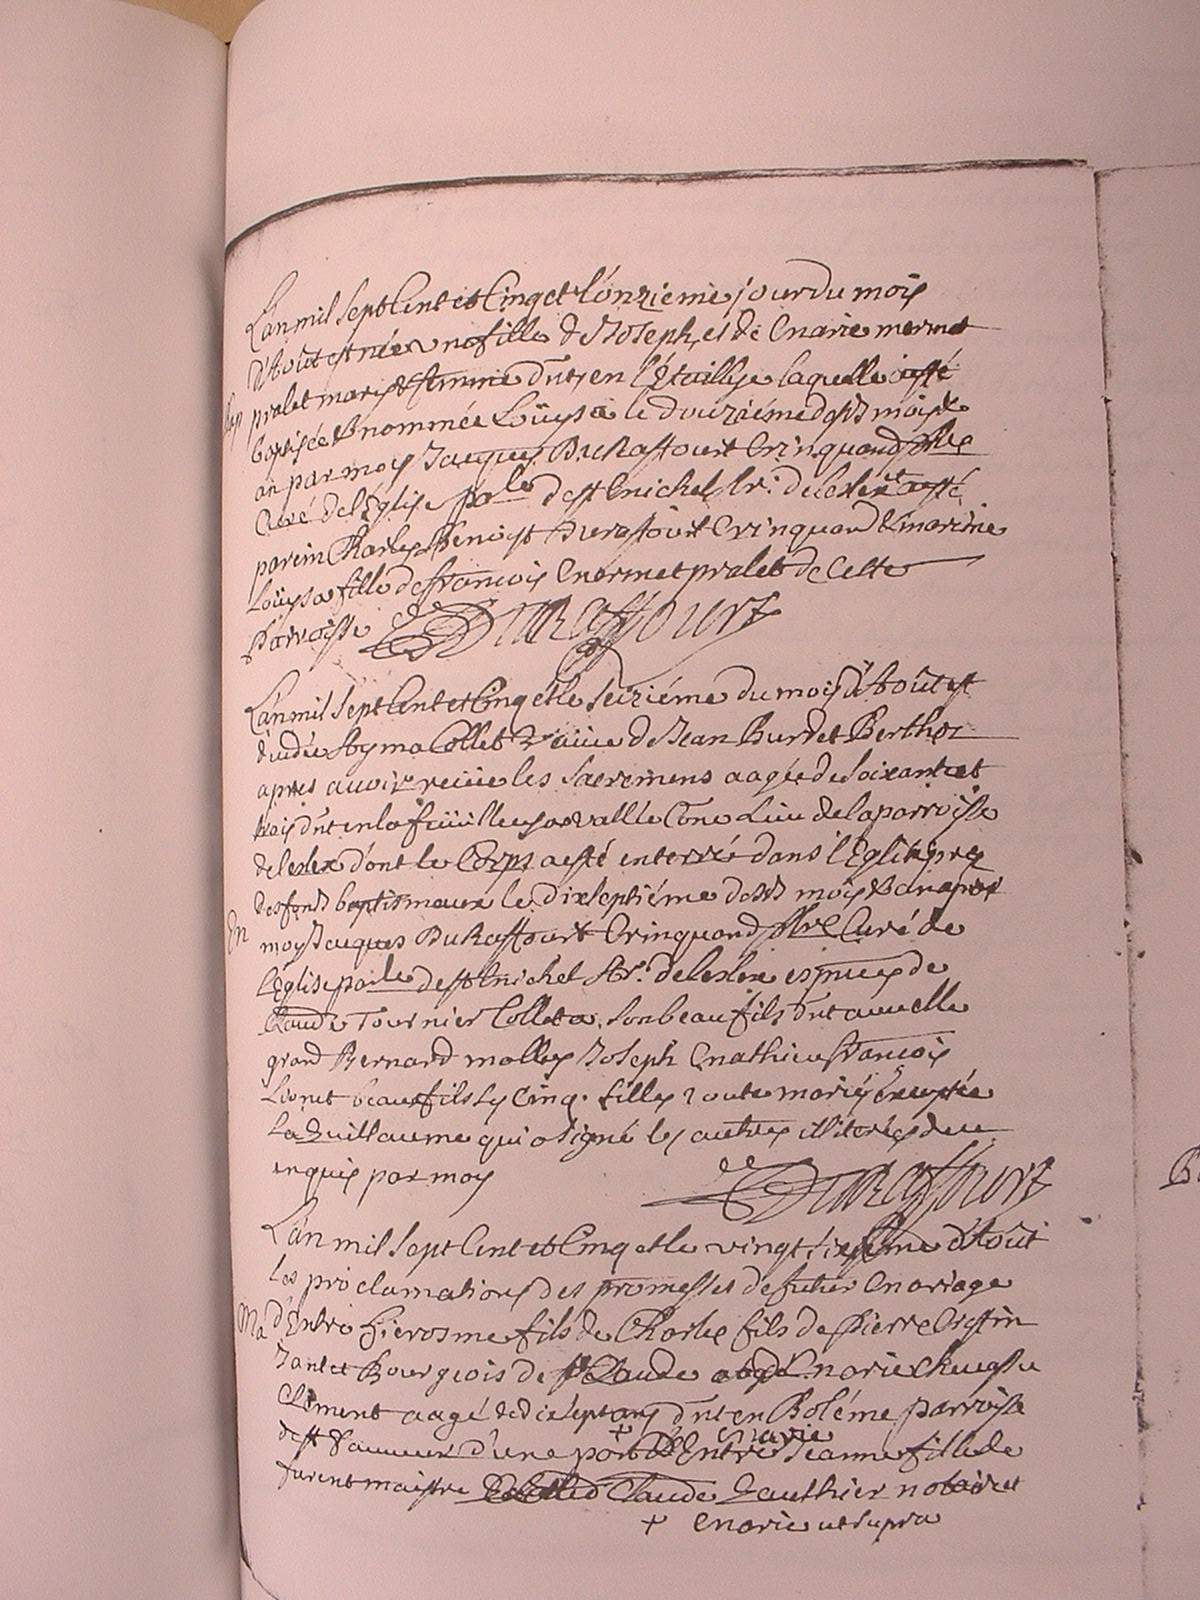 L'an mil sept Cent et Cinq et l'onzieme jour du mois
d'Août est née une fille de Joseph, et de Marie mermet
Bap pralet mariés & femme dnts en l'Étaillye laquelle a esté
baptisée & nommée Loüysa le douziéme desdts mois &
an par moy Jacques DuRaffourt Crinquand ptre
Curé de l'Église palle de st Michel Ar: de leslex et a esté
parein Charles Benoist Duraffourt Crinquand & mareine
Loüysa fille de francois mermet pralet de Cette
Parroisse DuRaffourt
L'an mil sept Cent et Cinq et le seiziéme du mois d'Août est
decedée Ayma Collet Veüue de Jean Burdet Berthet
apres auoir reçeüe les sacremens aagée de soixante et
trois dnt en la la vallée lieu de la parroisse
de leslex dont le Corps a esté enterré dans l'Eglise pres
des fonds baptismaux le dixseptiéme desdts mois & an par
En moy Jacques DuRaffourt Crinquand ptre Curé de
l'Église palle de st Michel Ar: de leslex es pnces de
Claude Tournier Colleta son beau fils dnt auec elle
grand Bernard molley Joseph Mathieu francois
beaux fils Cinq filles toutes mariés Exceptée
La Guillaume qui a signé les autres illiterés de ce
enquis par moy DuRaffourt
L'an mil sept Cent et Cinq et le vingt sixséme d'Août
les proclamations des promesses de futur Mariage
Ma d'Entre Hierosme fils de Charles fils de Pierre
et Bourgeois de st Claude Marie
Clement aagé de dixsept ans dnt en Boléme parroisse
de st Sauueur d'une part & d'Entre Marie Jeanne fille de
furent maistre Claude Gauthier notaire et
+ Marie ut supra